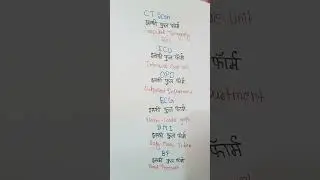 CT Scan
इसकी फुल फॉर्म
Computed Tomography
Scan
ICU
इसकी फुल फॉर्म
Intensive Care Unit
OPD
इसकी फुल फॉर्म
Outpatient Department
ECG
इसकी फुल फॉर्म
BMI
इसकी फुल फॉर्म
Body Mass Index
BP
इसकी फुल फॉर्म
Blood Pressure
Unit
फॉर्म
फॉर्म